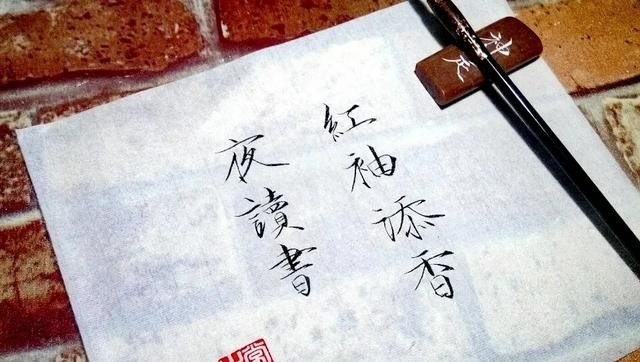 紅袖添香
夜讀書